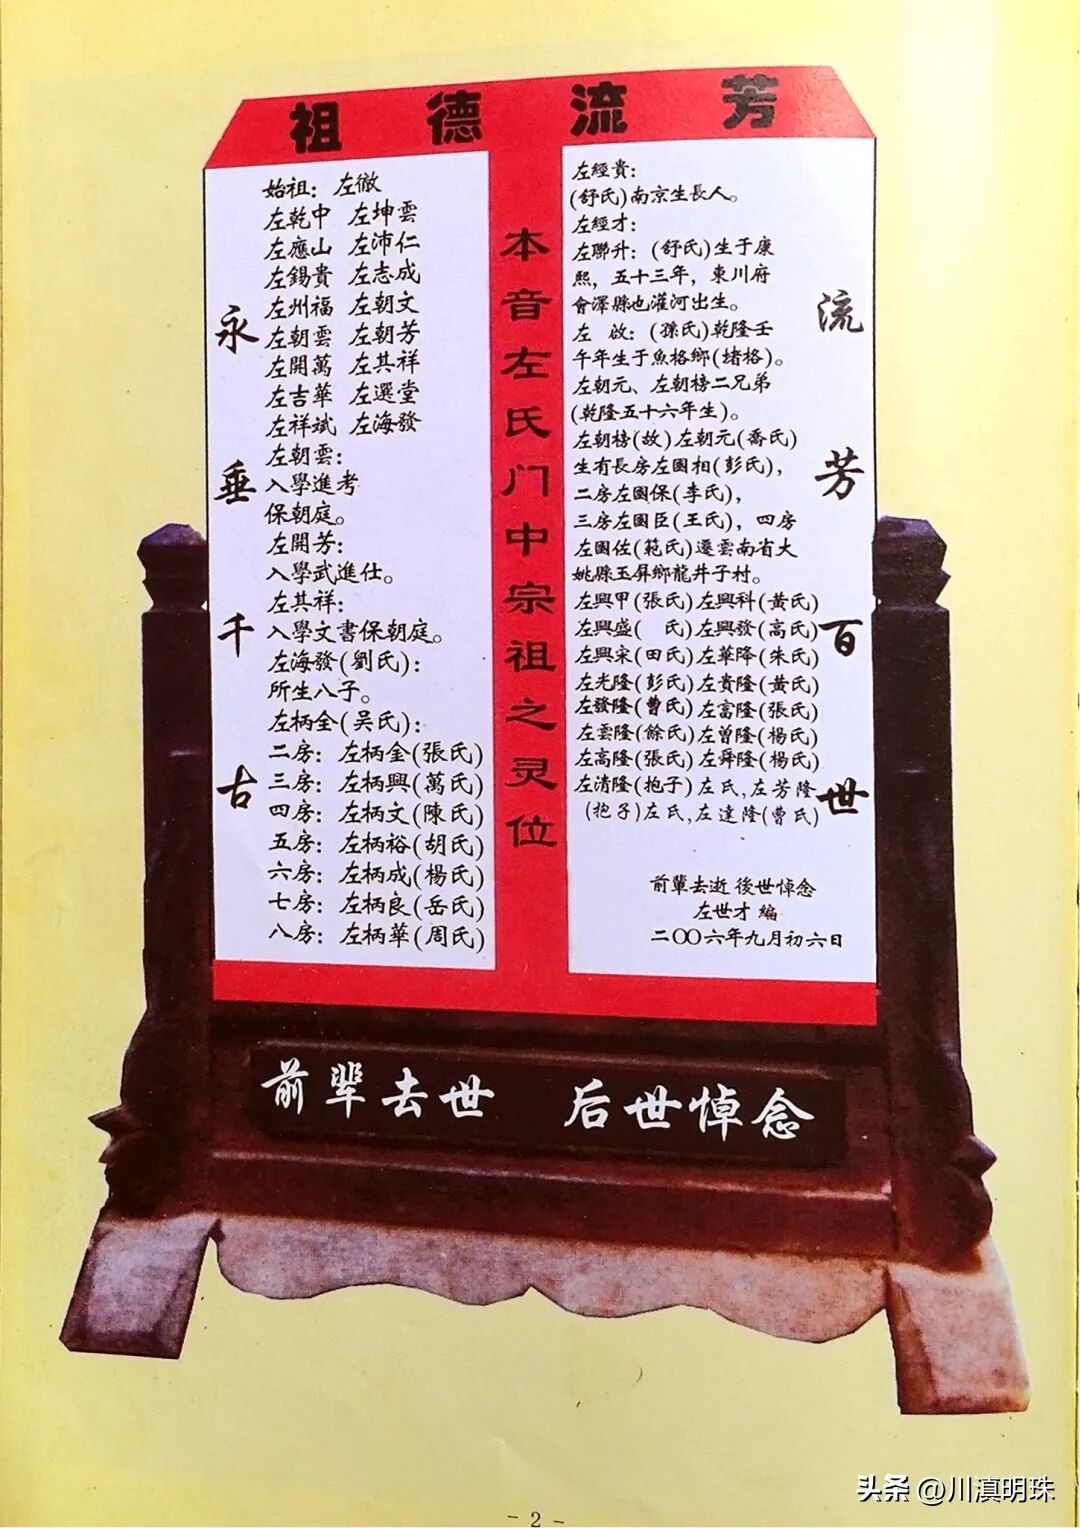 祖德流芳
永垂千古
始祖：左徹
左乾中 左坤雲
左應山 左沛仁
左錫貴 左志成
左州福 左朝文
左朝雲 左朝芳
左開萬 左其祥
左吉華 左選堂
左祥斌 左海發
左朝雲：
入學進考
保朝庭。
左開芳：
入學武進仕。
左其祥：
入學文書保朝庭。
左海發(劉氏)：
所生八子。
左柄全(吴氏)：
二房：左柄金(張氏)
三房：左柄興(萬氏)
四房：左柄文(陳氏)
五房：左柄裕(胡氏)
六房：左柄成(楊氏)
七房：左柄良(岳氏)
八房：左柄華(周氏)
本音左氏门中宗祖之灵位
左經貴：
(舒氏)南京生長人。
左經才：
左聯升：(舒氏)生于康
熙，五十三年，東川府
會澤縣也灌河出生。
左 啟：(孫氏)乾隆壬
午年生于魚格鄉(堵格)。
左朝元、左朝榜二兄弟
(乾隆五十六年生)。
左朝榜(故)左朝元(喬氏)
生有長房左國相(彭氏)，
二房左國保(李氏)，
三房左國臣(王氏)，四房
左國佐(範氏)遷雲南省大
姚縣玉屏鄉龍井子村。
左興甲(張氏)左興科(黄氏)
左興盛( 氏)左興發(高氏)
左興宋(田氏)左華降(朱氏)
左光隆(彭氏)左貴隆(黄氏)
左發隆(曹氏)左富隆(張氏)
左雲隆(餘氏)左曾隆(楊氏)
左高隆(張氏)左舜隆(楊氏)
左清隆(抱子)左氏,左芳隆
(抱子)左氏,左達隆(曹氏)
前輩去逝 後世悼念
左世才 編
二〇〇六年九月初六日
流芳百世
前辈去世 后世悼念
头条 @川滇明珠
- 2 -